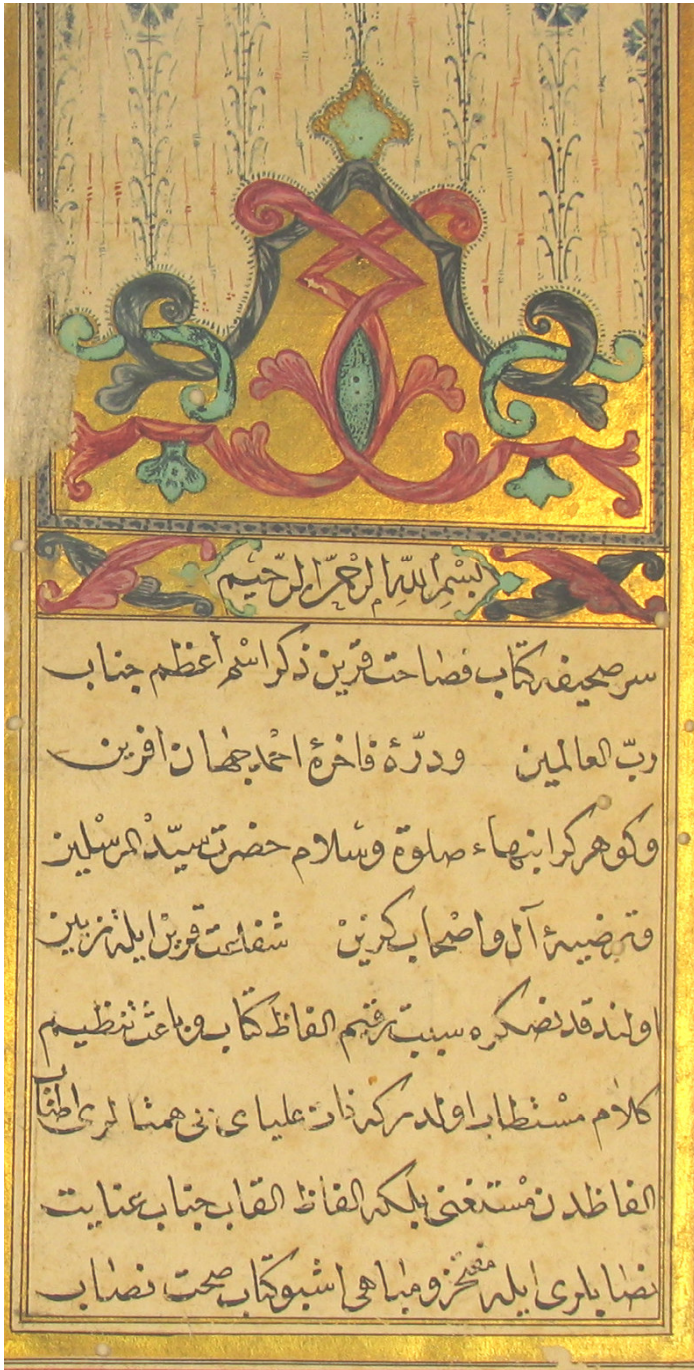 بِسْمِ اللّٰهِ الرَّحْمٰنِ الرَّحِيم
سر صحيفهٔ كتاب فصاحت قرين ذكر اسْم أعظم جناب
ربّ العالمين ودرّهٔ فاخرهٔ احمد جهان افرين
وكوهر كرانبهاء صلوة وسلام حضرت سيّد المرسلين
وترضيهٔ آل واصْحاب كزين شفاعت قرين ايله تزيين
اولندقدنصكره سبب ترقيم الفاظ كتاب وباعث تنظيم
كلام مسْتطاب اولدركه ذات علياى بى همتالرى اطناب
الفاظدن مسْتغنى بلكه الفاظ القاب جناب عنايت
نصابلرى ايله مفتخر ومباهى اشبو كتاب صحت نصاب